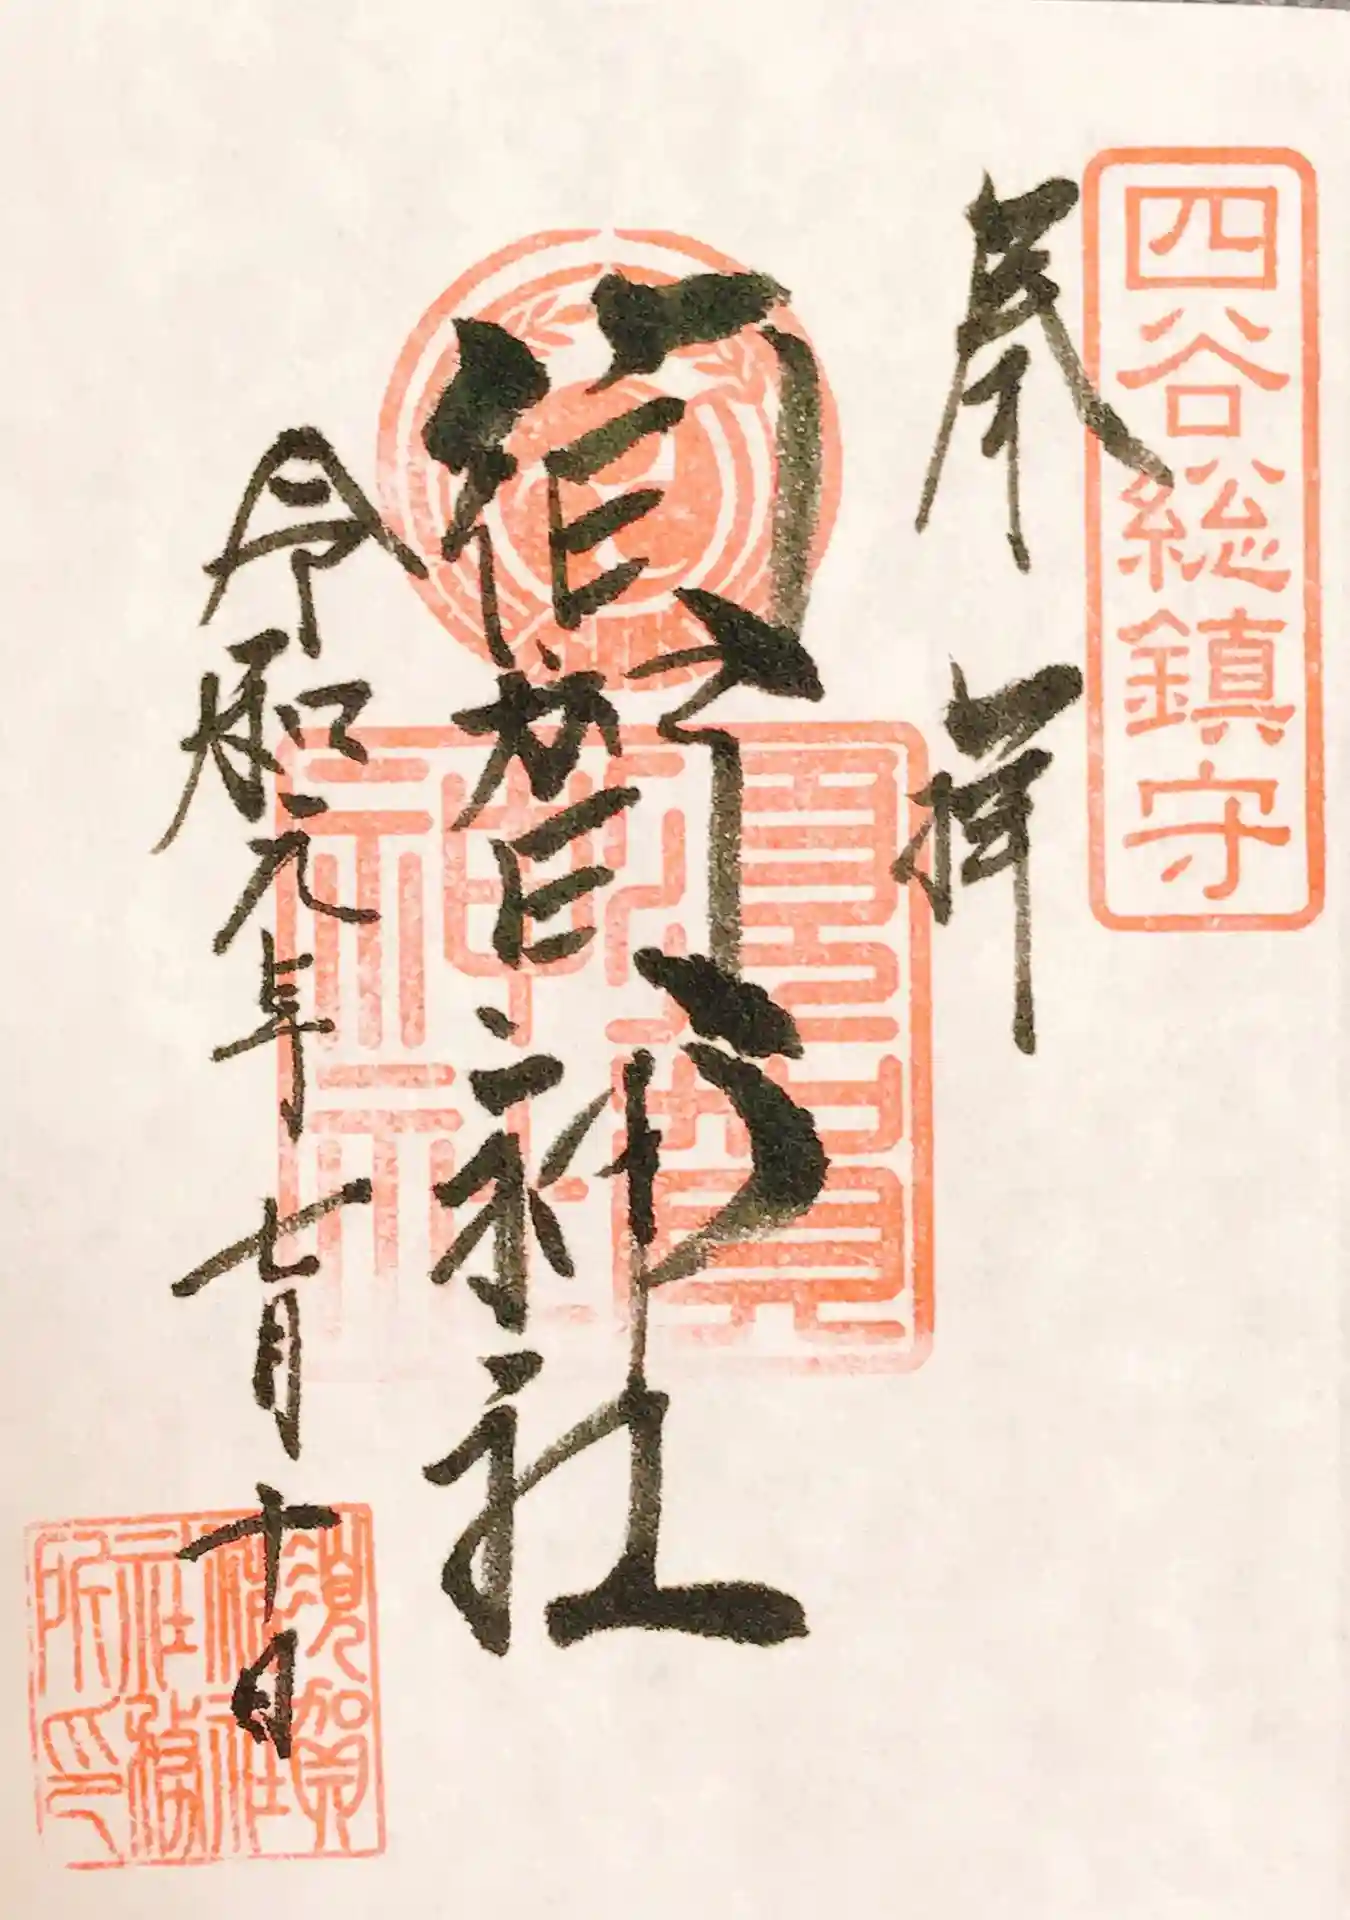 四谷総鎮守
奉拝
須賀神社
須賀神社
令和元年七月十日
須賀神社社務所印